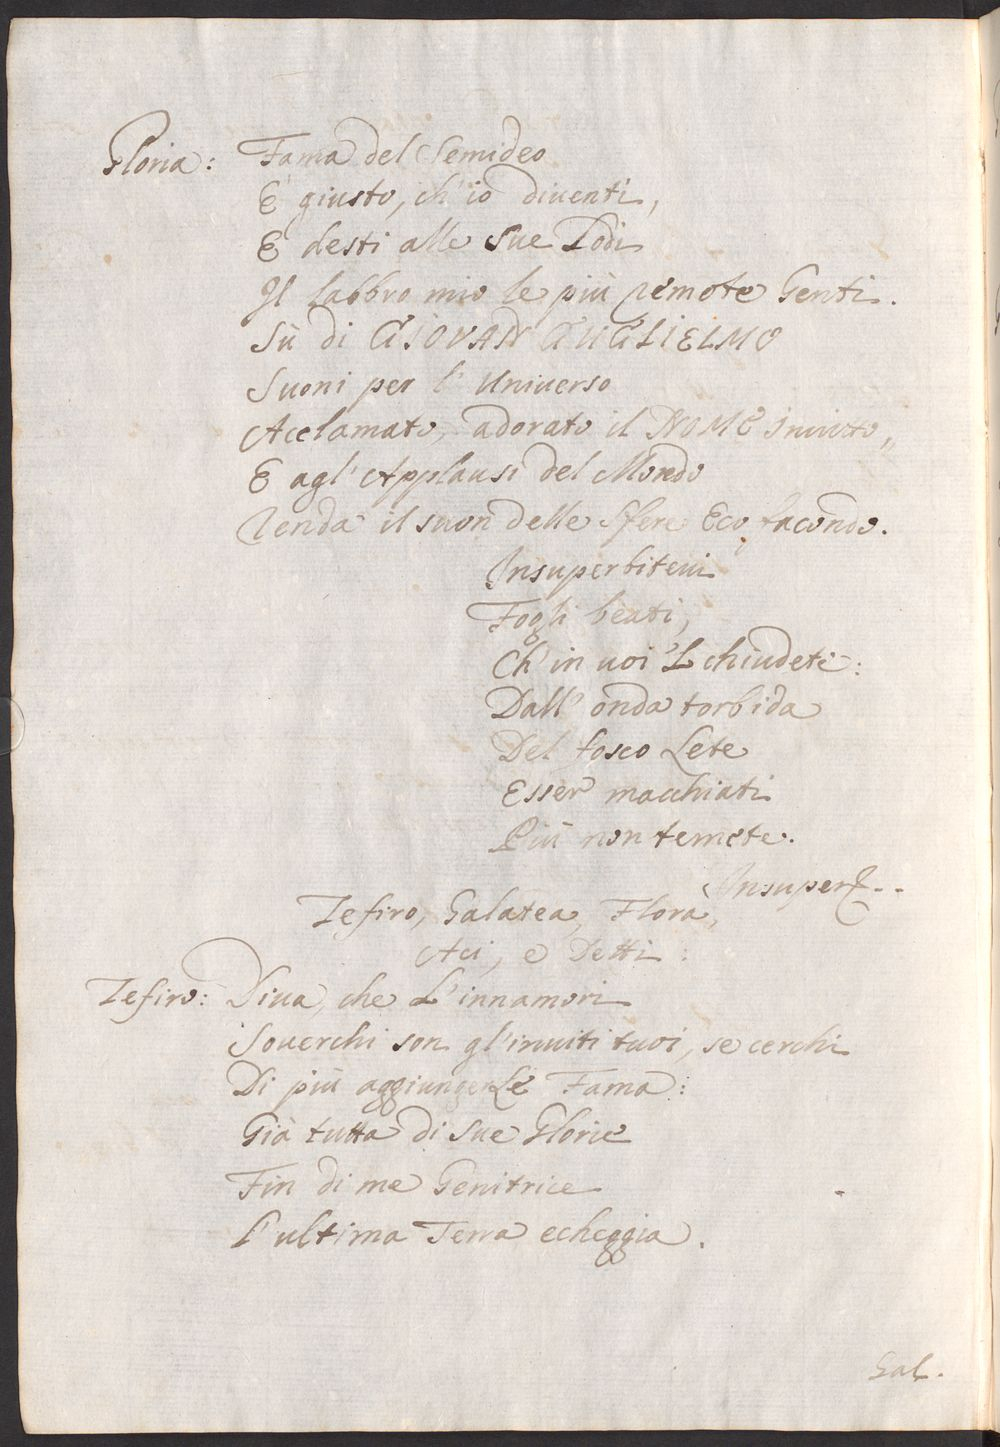 Gloria: Fama del Semideo
E' giusto, ch' io diuenti,
E desti alle Sue Lodi
Il labbro mio le più remote Genti.
Sù di GIOVAN GUGLIELMO
Suoni per l' Uniuerso
Acclamato, adorato il NOME Inuitto,,
E agl' Applausi del Mondo
Renda il suon delle Sfere Eco facondo.
Insuperbiteui
Fogli beati,
Ch' in uoi 'L chiudete:
Dall' onda torbida
Del fosco Lete
Esser macchiati
Più non temete.
Insuperb--
Zefiro, Galatea, Flora,
Aci, e Detti:
Zefiro: Diua, che L'innamori
Souerchi son gl'inuiti tuoi, se cerchi
Di più aggiungerLe Fama:
Già tutta di Sue Glorie
Fin di me Genitrice
L'ultima Terra echeggia.
Gal.